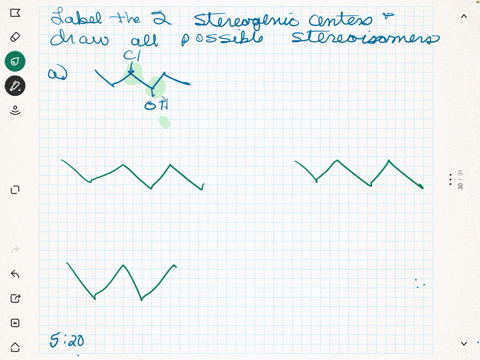 Label the 2 stereogenic centers &
draw all possible stereoisomers
a)
Cl
OH
5:20